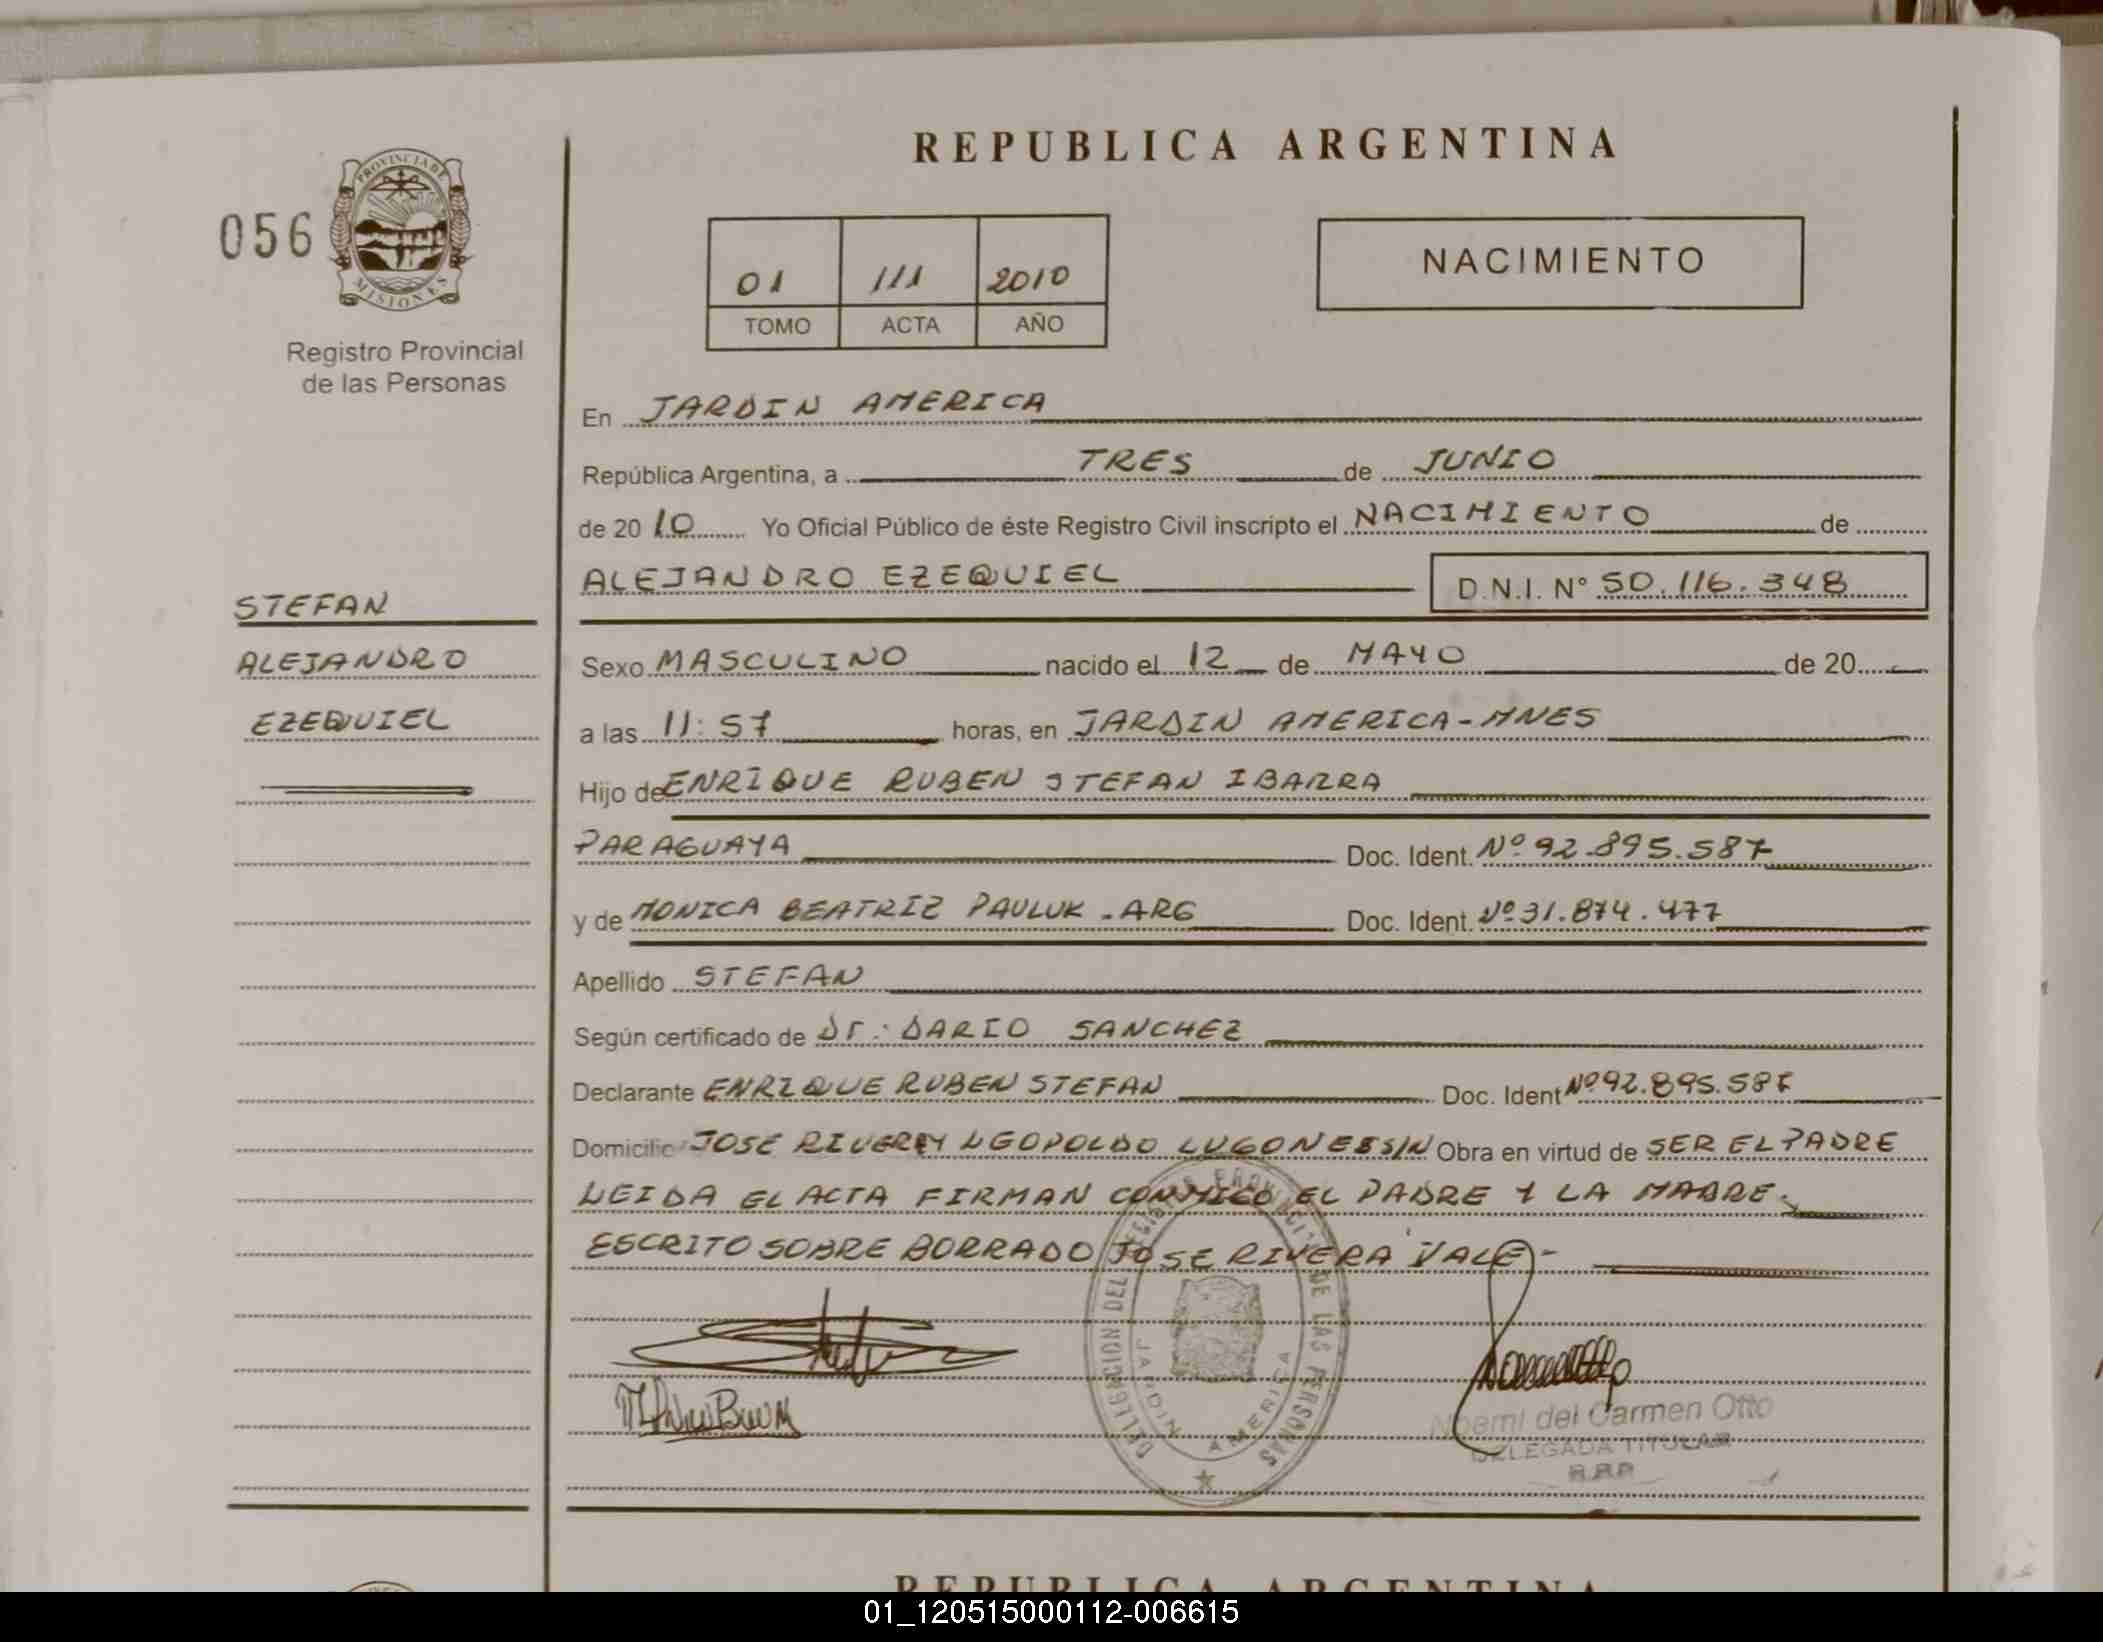 REPUBLICA ARGENTINA
056
PROVINCIA DE
MISIONES
Registro Provincial
de las Personas
01 111 2010
TOMO ACTA AÑO
NACIMIENTO
En JARDIN AMERICA
República Argentina, a TRES de JUNIO
de 20 10 Yo Oficial Público de éste Registro Civil inscripto el NACIMIENTO de
ALEJANDRO EZEQUIEL D.N.I. N° 50.116.348
STEFAN
ALEJANDRO
EZEQUIEL
Sexo MASCULINO nacido el 12 de MAYO de 20
a las 11:57 horas, en JARDIN AMERICA-MNES
Hijo de ENRIQUE RUBEN STEFAN IBARRA
PARAGUAYA Doc. Ident. Nº 92.895.587
y de MONICA BEATRIZ PAULUK - ARG Doc. Ident. Nº 31.874.477
Apellido STEFAN
Según certificado de Dr: DARIO SANCHEZ
Declarante ENRIQUE RUBEN STEFAN Doc. Ident Nº 92.895.587
Domicilio JOSE RIVERA Y LEOPOLDO LUGONES S/N Obra en virtud de SER EL PADRE
LEIDA EL ACTA FIRMAN CONMIGO EL PADRE Y LA MADRE.
ESCRITO SOBRE BORRADO JOSE RIVERA VALE-
DELEGACION DEL REGISTRO PROVINCIAL DE LAS PERSONAS
JARDIN AMERICA
Noemi del Carmen Otto
DELEGADA TITULAR
R.P.P.
REPUBLICA ARGENTINA
01_120515000112-006615